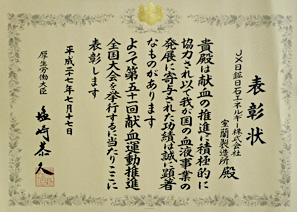 表彰状
JX日鉱日石エネルギー株式会社
室蘭製造所 殿
貴殿は献血の推進に積極的に
協力され以て我が国の血液事業の
発展に寄与された功績は誠に顕著
なものがあります
よって第五十一回献血運動推進
全国大会を挙行するに当たりここに
表彰します
平成二十七年七月十七日
厚生労働大臣
塩崎恭久